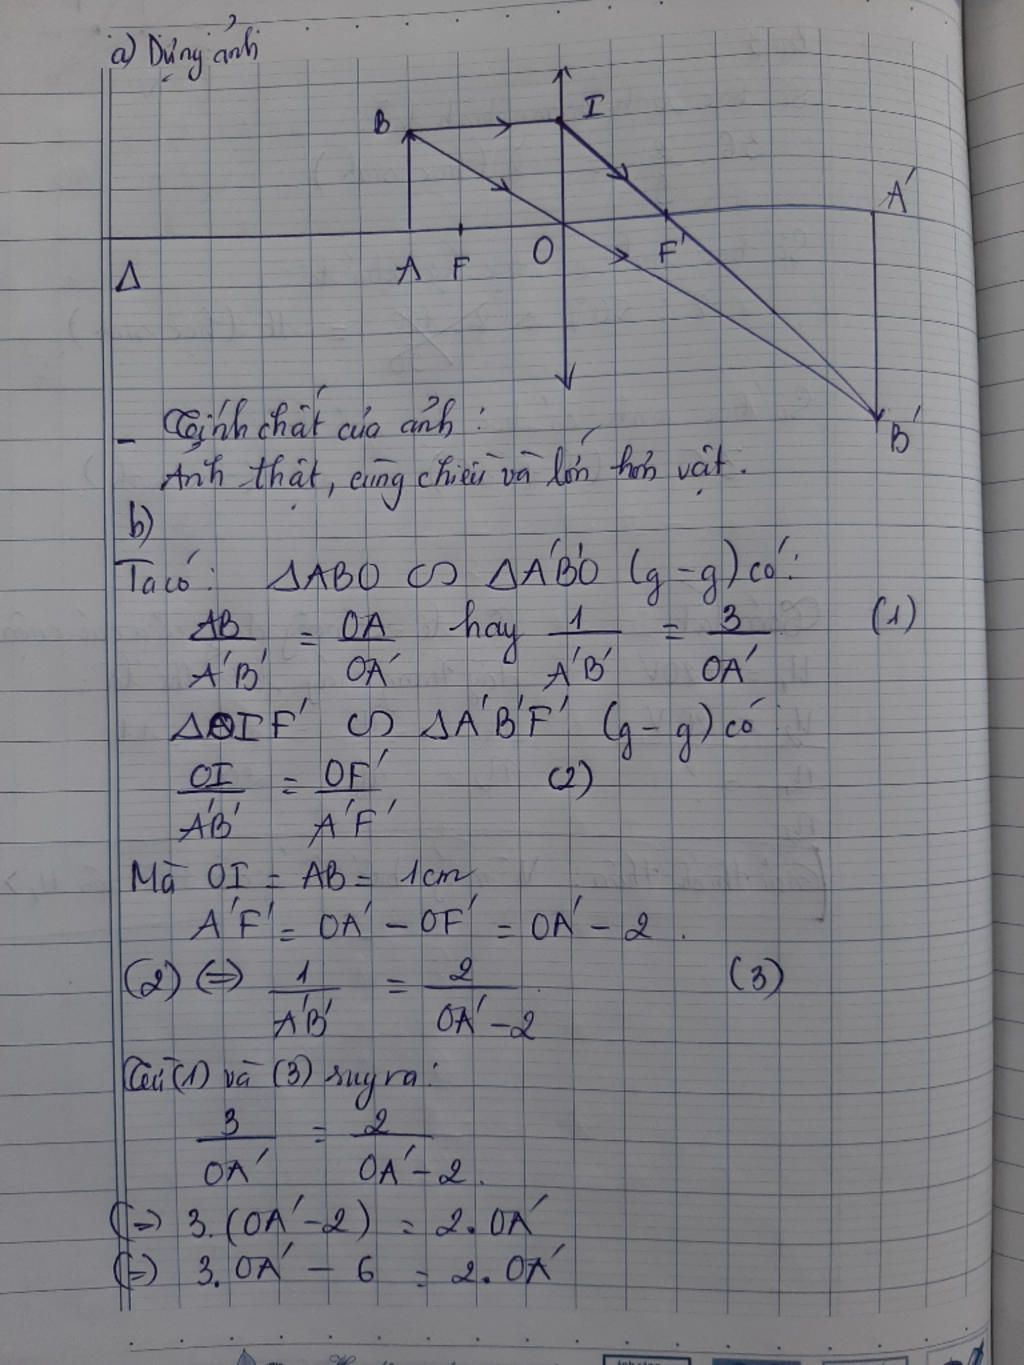 a) Dựng ảnh
B
I
A'
Δ
A
F
O
F'
B'
- Tính chất của ảnh:
Ảnh thật, cùng chiều và lớn hơn vật.
b)
Ta có: ΔABO ∽ ΔA'B'O (g-g) có:
AB/A'B' = OA/OA' hay 1/A'B' = 3/OA' (1)
ΔOIF' ∽ ΔA'B'F' (g-g) có
OI/A'B' = OF'/A'F' (2)
Mà OI = AB = 1cm
A'F' = OA' - OF' = OA' - 2.
(2) (=) 1/A'B' = 2/OA'-2 (3)
Từ (1) và (3) suy ra:
3/OA' = 2/OA'-2.
(=) 3.(OA'-2) = 2.OA'
(=) 3.OA' - 6 = 2.OA'